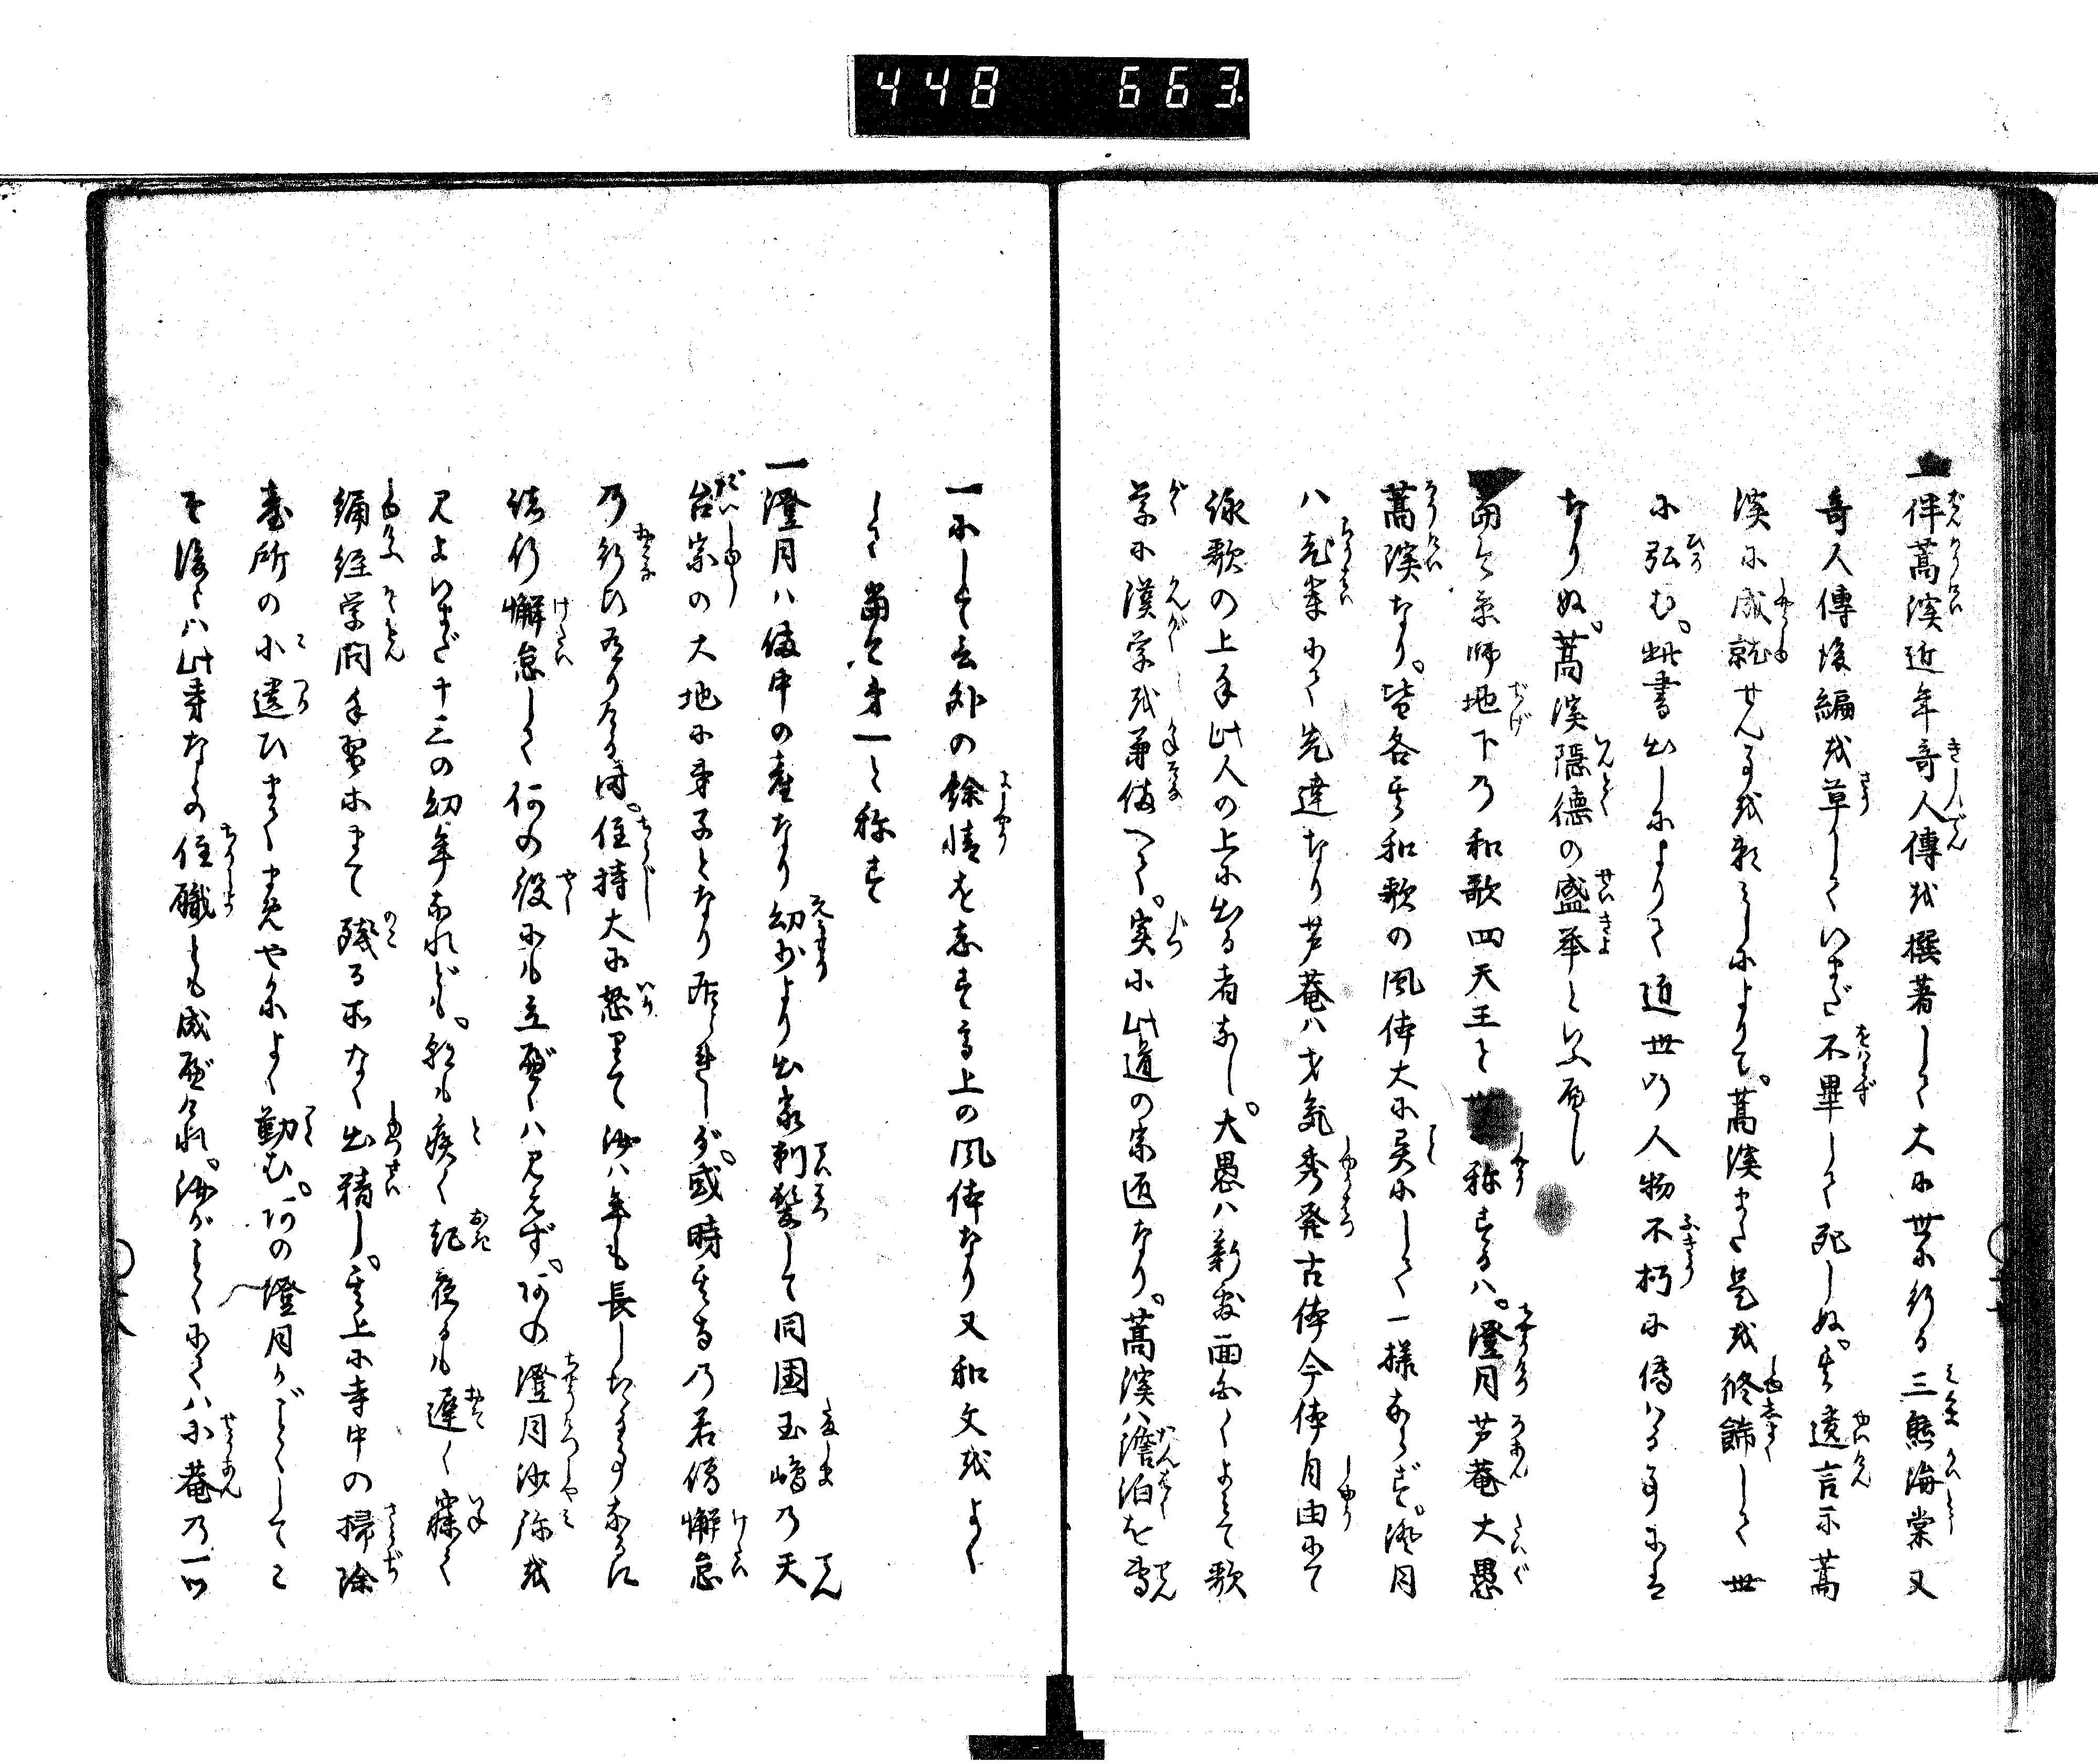 448 663
一伴蒿渓近年竒人傳を撰著して大に世に行る三熊海棠又
竒人傳後編を草していまだ不畢して死しぬ。其遺言に蒿
渓に成就せん事を頼みしによりて。蒿渓また是を修飾して世
に弘む。此書出しによりて近世の人物不朽に傳はる事になり
なりぬ。蒿渓隠徳の盛挙といふべし
一當今京師地下の和歌四天王と世に称するは。澄月芦菴大愚
蒿渓なり。皆各其和歌の風体大に異にして一様ならず。澄月
は老輩にて先達なり芦菴は才気秀発古体今体自由にて
詠歌の上手此人の上に出る者なし。大愚は新敷面白くよみて歌
学に漢学を兼備へて。実に此道の宗匠なり。蒿渓は澹泊を専
一にして言外の餘情を志す高上の風体なり又和文をよく
して當今第一と称す
一澄月は備中の産なり幼少より出家剃髪して同国玉嶋の天
台宗の大地に弟子となり居られしが。或時其寺の若僧懈怠
の行ひ有りける時。住持大に怒りて汝は年も長じたる事なるに
諸行懈怠して何の役にも立べくは見えず。阿の澄月沙弥を
見よいまだ十三の幼年なれども。朝も疾く起夜るも遅く寐て
誦経学問手習にまで残る所なく出精し。其上に寺中の掃除
臺所の小遣ひまてまめやかによく勤む。阿の澄月がごとくしてこ
そ後々は此寺などの住職とも成べけれ。汝がごとくにては小菴の一つ